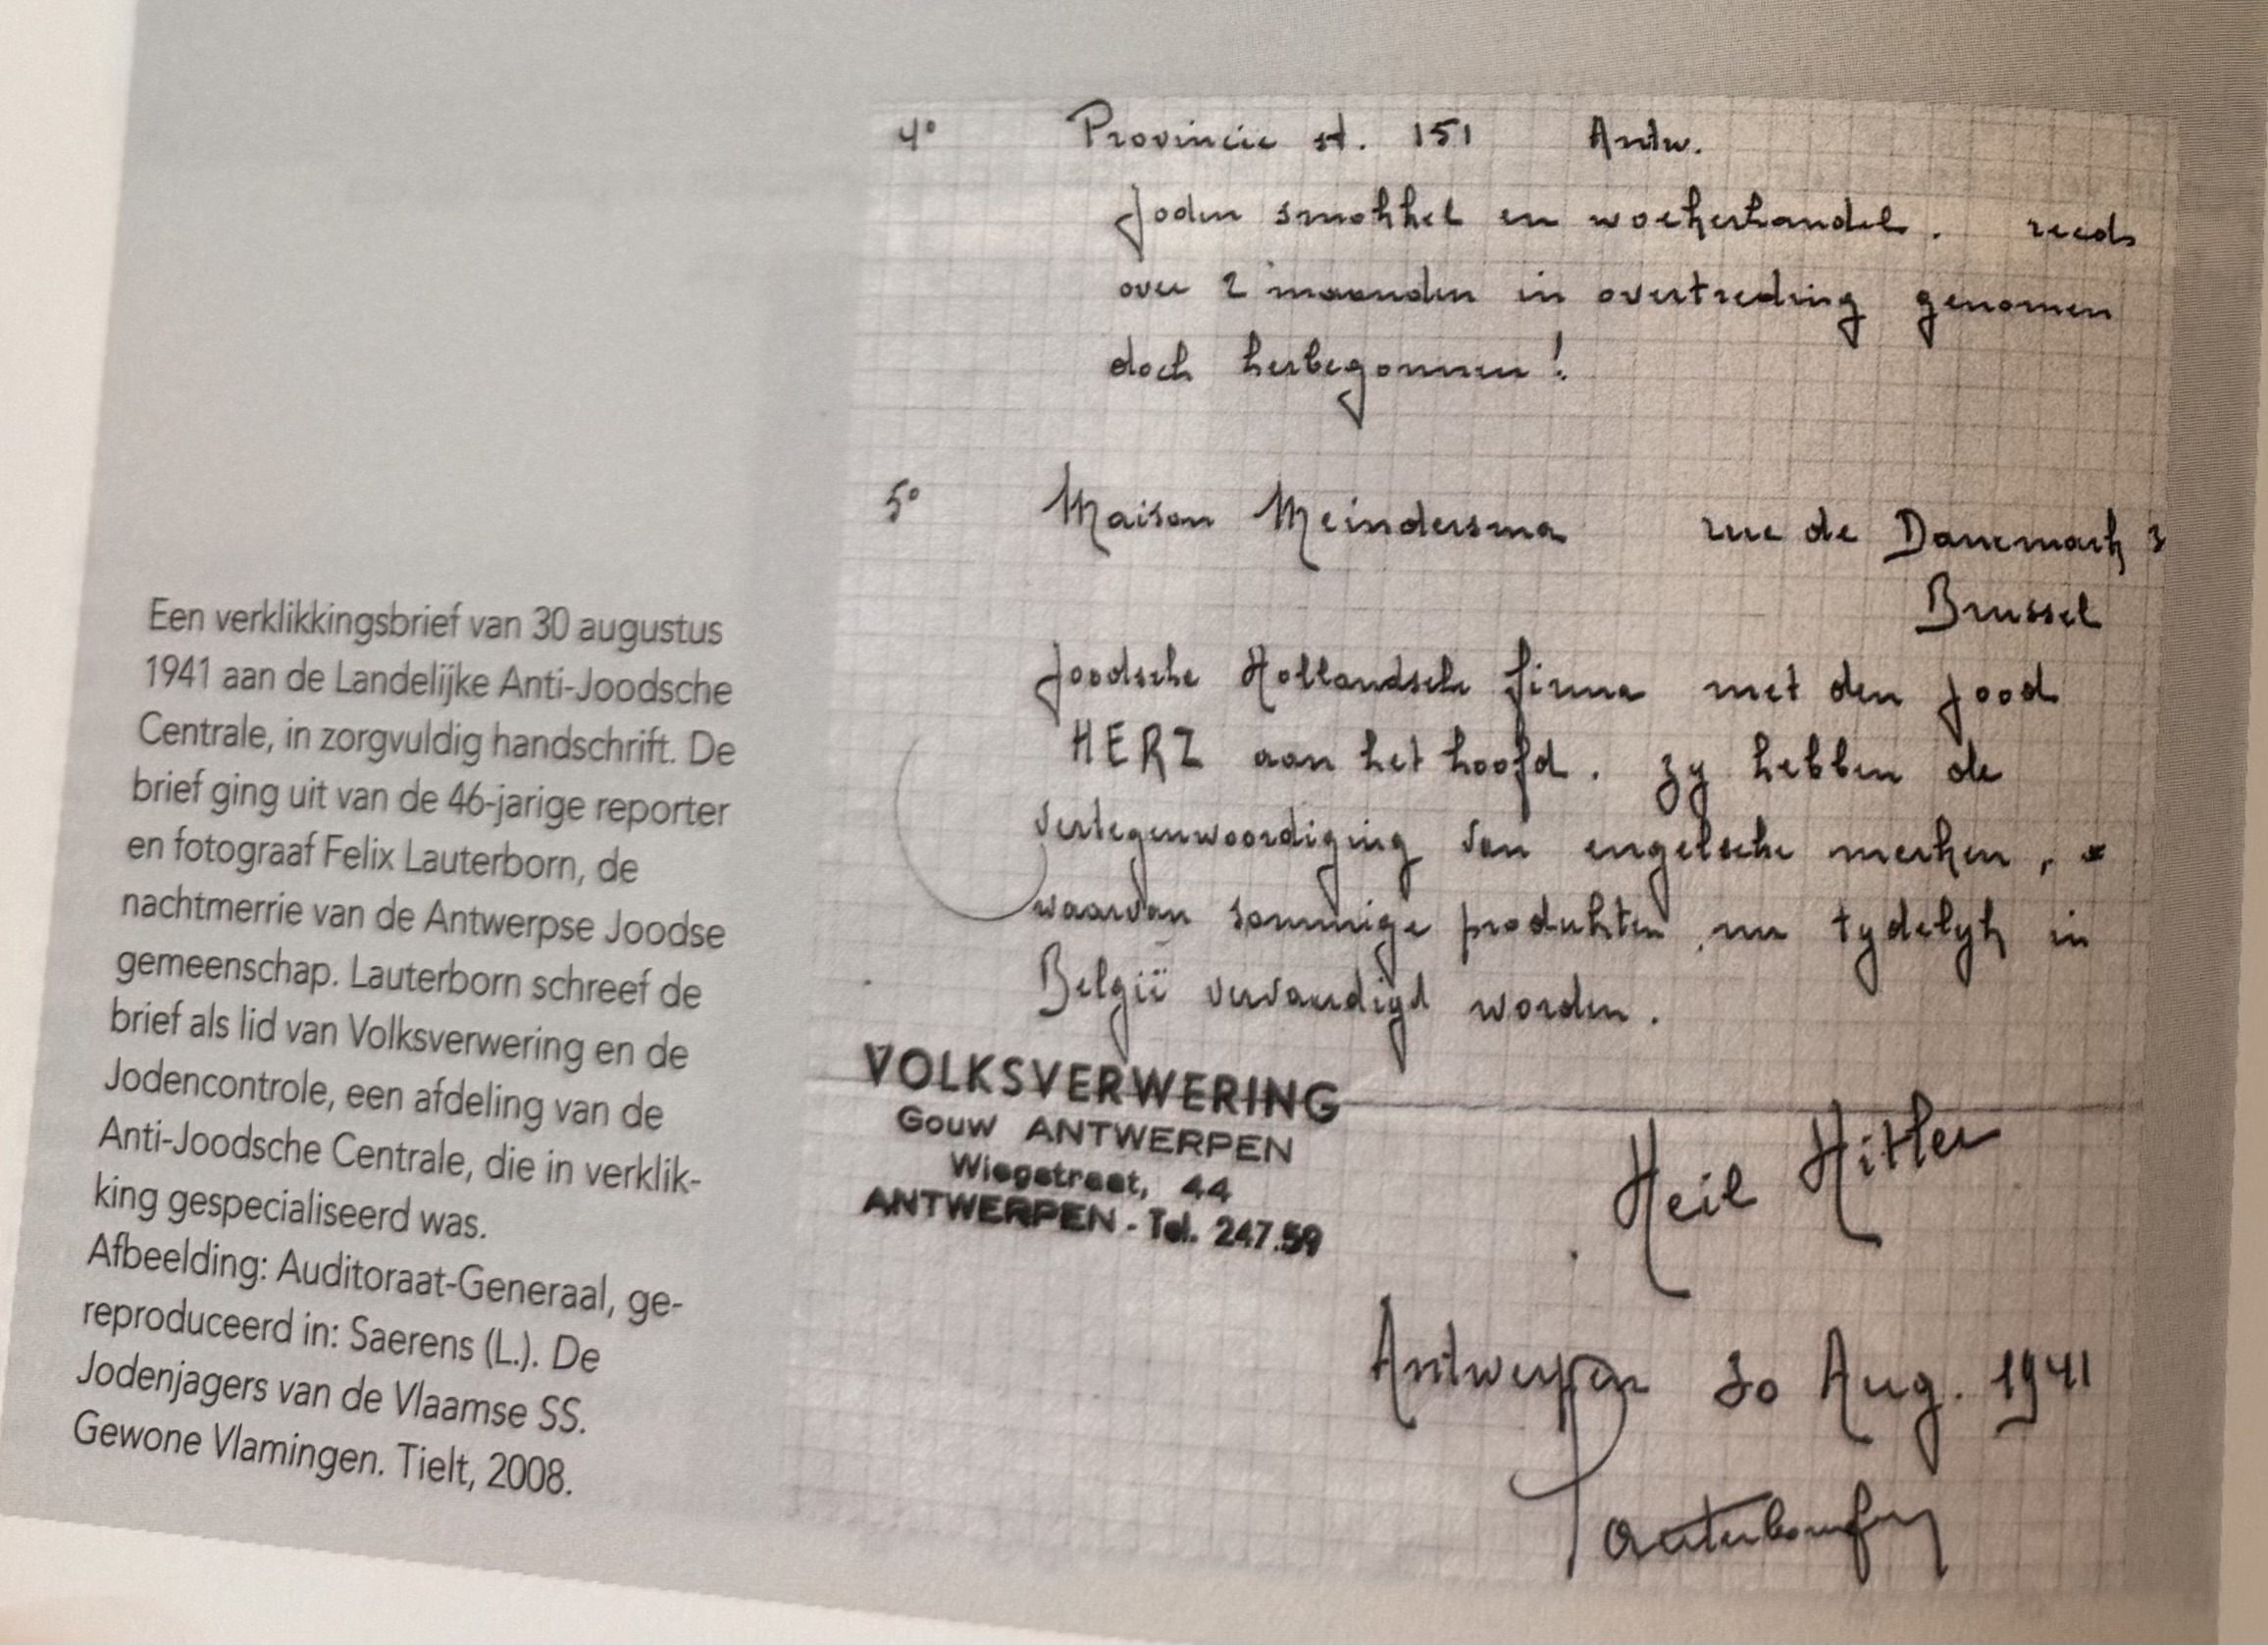 Een verklikkingsbrief van 30 augustus
1941 aan de Landelijke Anti-Joodsche
Centrale, in zorgvuldig handschrift. De
brief ging uit van de 46-jarige reporter
en fotograaf Felix Lauterborn, de
nachtmerrie van de Antwerpse Joodse
gemeenschap. Lauterborn schreef de
brief als lid van Volksverwering en de
Jodencontrole, een afdeling van de
Anti-Joodsche Centrale, die in verklik-
king gespecialiseerd was.
Afbeelding: Auditoraat-Generaal, ge-
reproduceerd in: Saerens (L.). De
Jodenjagers van de Vlaamse SS.
Gewone Vlamingen. Tielt, 2008.
4° Provincie st. 151 Antw.
Joden smokkel en woekerhandel. reeds
over 2 maanden in overtreding genomen
doch herbegonnen!
5° Maison Meindersma rue de Danemark
Brussel
Joodsche Hollandsche firma met den jood
HERZ aan het hoofd. zy hebben de
vertegenwoordiging van engelsche merken,
waarvan sommige produkten nu tydelyk in
België vervaardigd worden.
VOLKSVERWERING
Gouw ANTWERPEN
Wiegstraat, 44
ANTWERPEN - Tel. 247.59
Heil Hitler
Antwerpen 30 Aug. 1941